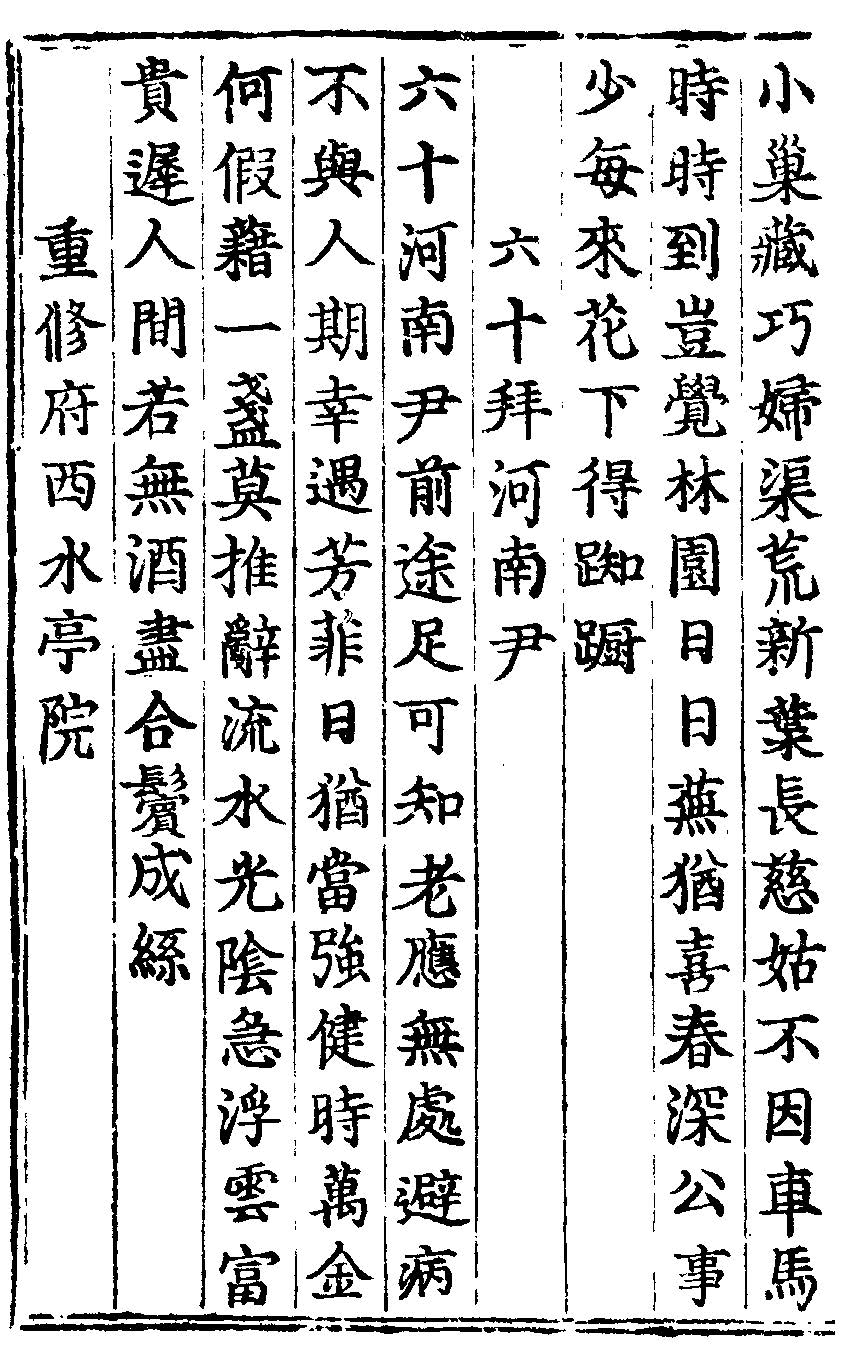 小巢藏巧婦渠荒新葉長慈姑不因車馬
時時到豈覺林園日日蕪猶喜春深公事
少每來花下得踟蹰
六十拜河南尹
六十河南尹前途足可知老應無處避病
不與人期幸遇芳菲日猶當強健時萬金
何假藉一盞莫推辭流水光陰急浮雲富
貴遲人間若無酒盡合鬢成絲
重修府西水亭院